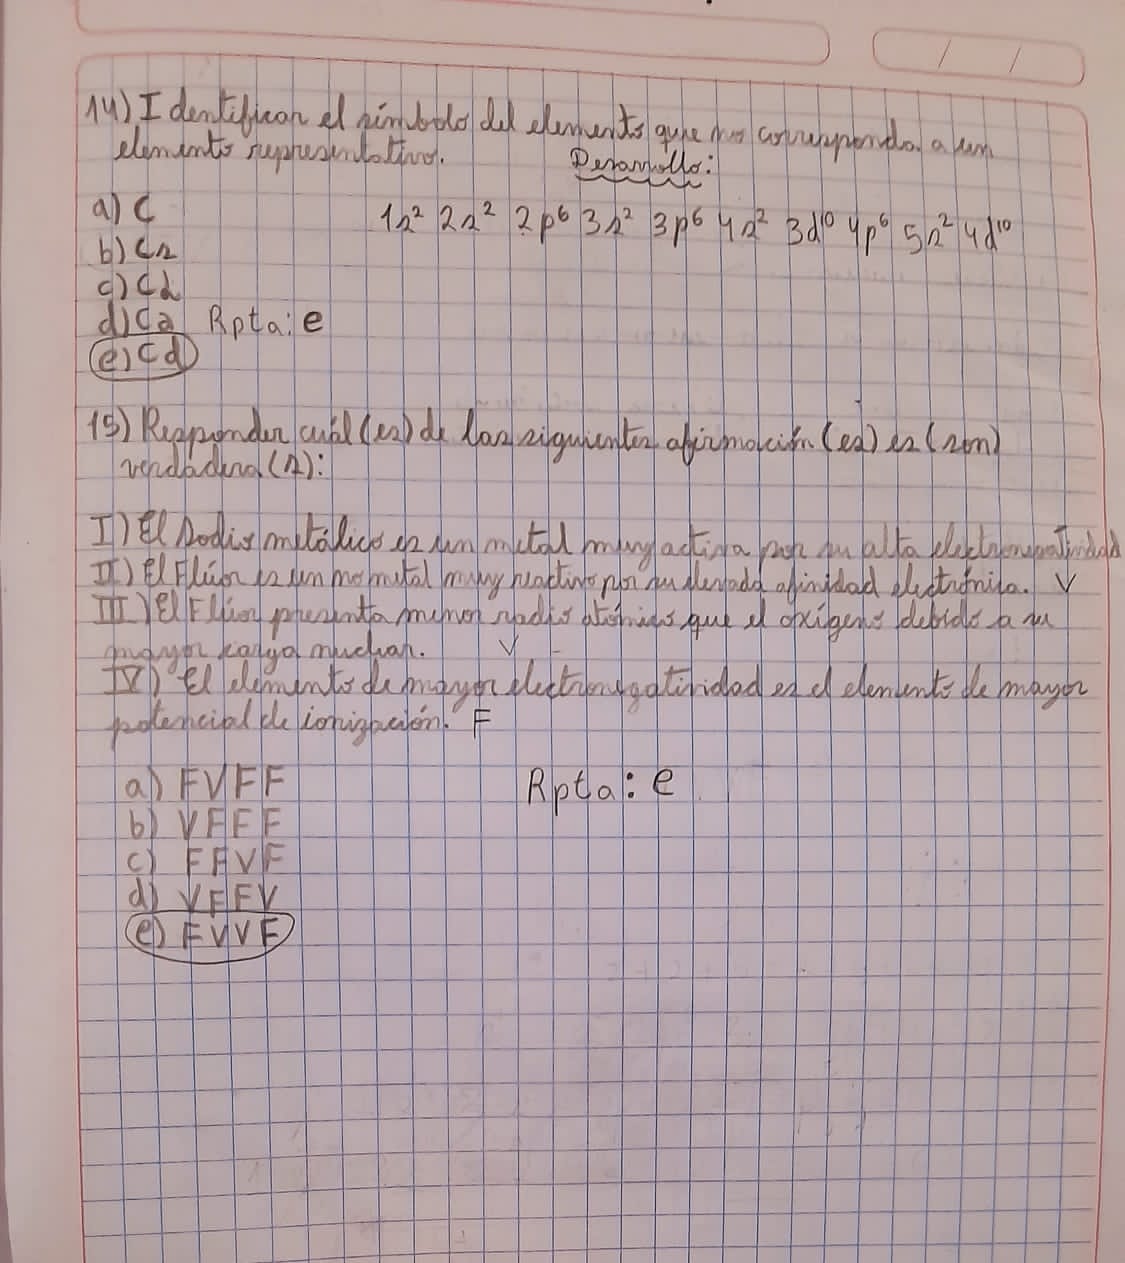 14) Identificar el símbolo del elemento que no corresponda a un
elemento representativo.
Desarrollo:
a) C
1s² 2s² 2p⁶ 3s² 3p⁶ 4s² 3d¹⁰ 4p⁶ 5s² 4d¹⁰
b) Cs
c) Cl
d) Ca Rpta: e
e) Cd
15) Responder cuál(es) de las siguientes afirmación(es) es (son)
verdadera(s):
I) El Sodio metálico es un metal muy activa por su alta electronegatividad
II) El Flúor es un no metal muy reactivo por su elevada afinidad electrónica. V
III) El Flúor presenta menor radio atómico que el oxígeno debido a su
mayor carga nuclear. V
IV) El elemento de mayor electronegatividad es el elemento de mayor
potencial de ionización. F
a) FVFF
Rpta: e
b) VFFF
c) FFVF
d) VFFV
e) FVVF